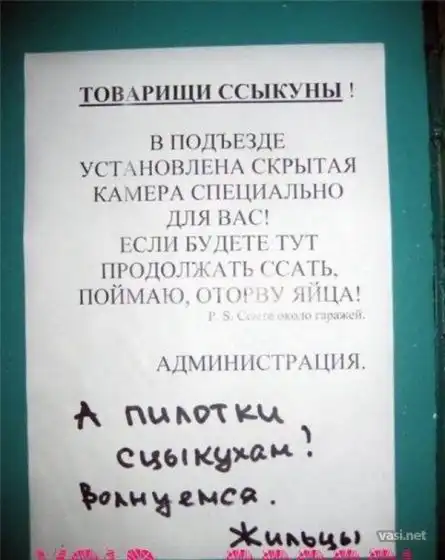 ТОВАРИЩИ ССЫКУНЫ !
В ПОДЪЕЗДЕ
УСТАНОВЛЕНА СКРЫТАЯ
КАМЕРА СПЕЦИАЛЬНО
ДЛЯ ВАС!
ЕСЛИ БУДЕТЕ ТУТ
ПРОДОЛЖАТЬ ССАТЬ,
ПОЙМАЮ, ОТОРВУ ЯЙЦА!
P. S. Ссыте около гаражей.
АДМИНИСТРАЦИЯ.
А ПИЛОТКИ
СЦЫКУХАМ?
Волнуемся.
Жильцы
vasi.net